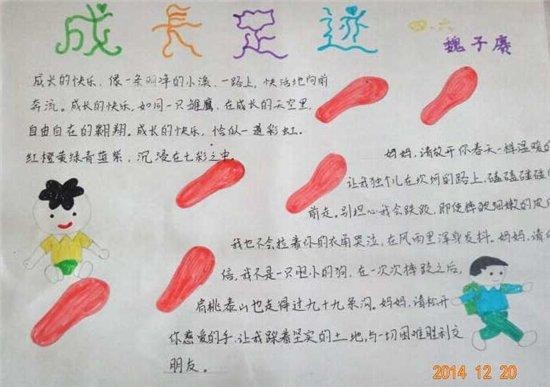 成长足迹
四.六
魏子赓
成长的快乐，像一条叫洋的小溪，一路上，快活地向前
奔流。成长的快乐，如同一只雄鹰，在成长的天空里，
自由自在的翱翔。成长的快乐，恰似一道彩虹。
红橙黄绿青蓝紫，沉浸在七彩之中。
妈妈，请放开你春天一样温暖的
让我独个儿在坎坷的路上，磕磕碰碰
前走，别担心我会跌跤，即使摔破细嫩的皮
我也不会拉着你的衣角哭泣，在风雨里浑身发抖。妈妈，请
信，我不是一只胆小的狗，在一次次摔跤之后，
肩挑泰山也走得过九十九条沟。妈妈，请松开
你慈爱的手，让我踩着坚实的土地，与一切困难胜利交
朋友。
2014 12 20